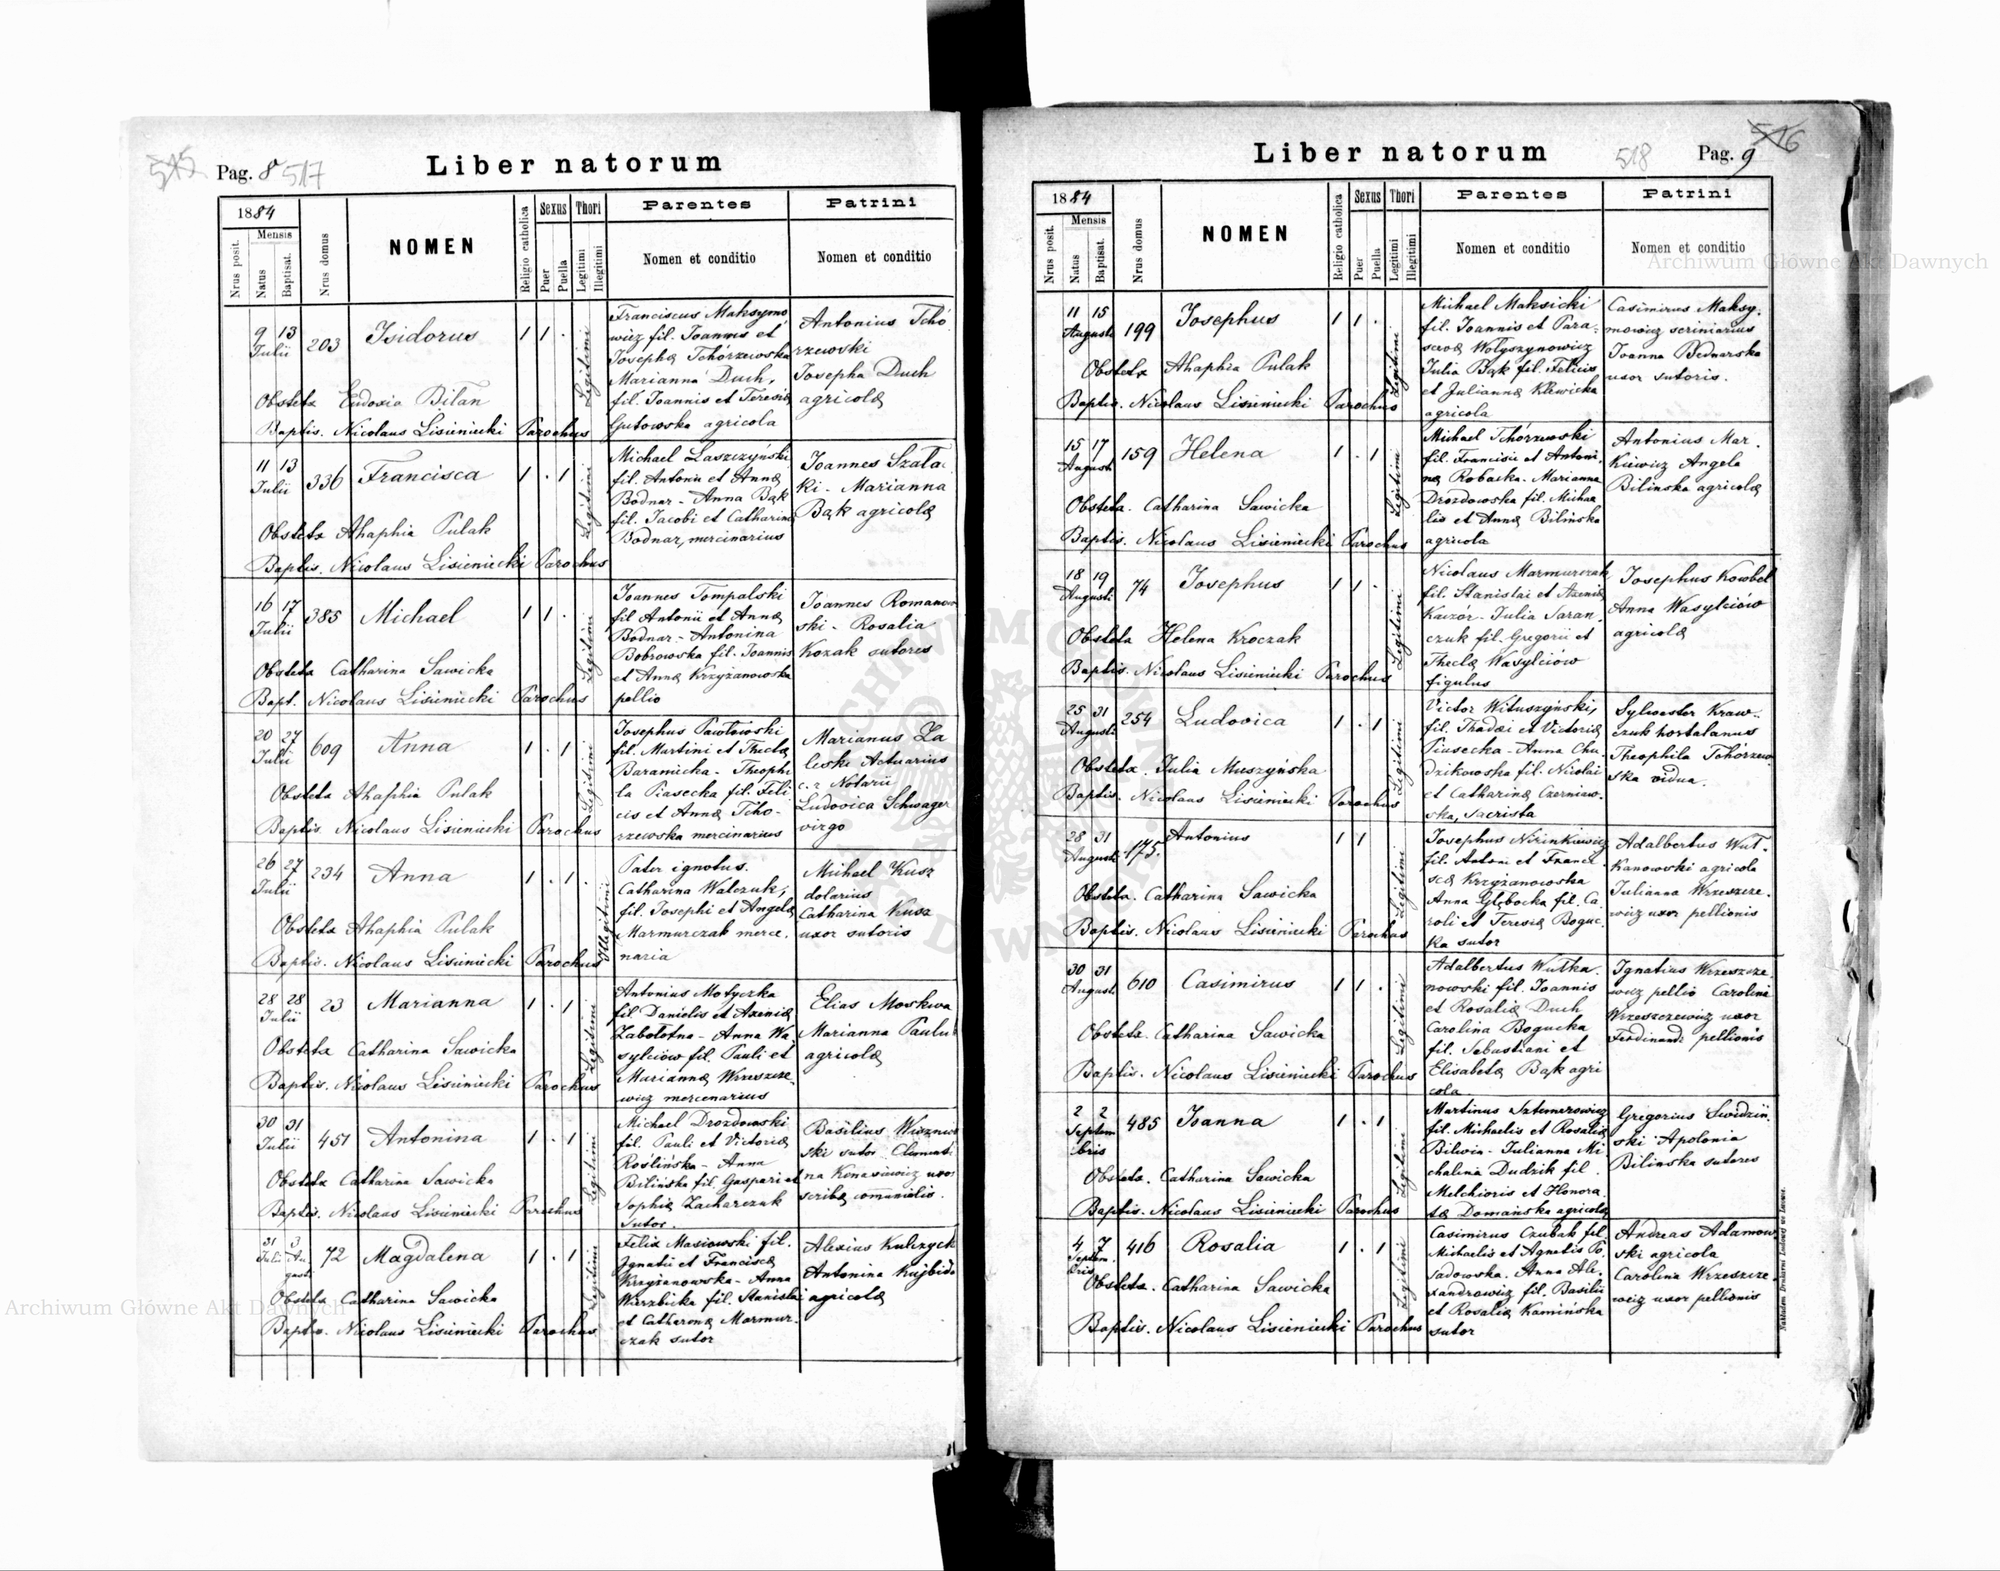 515
Pag. 8 517
Liber natorum
1884
Mensis
Nrus posit.
Natus
Baptisat.
Nrus domus
NOMEN
Religio catholica
Sexus
Puer
Puella
Thori
Legitimi
Illegitimi
Parentes
Nomen et conditio
Patrini
Nomen et conditio
9 13 Julii
203
Isidorus
1 1 .
Legitimi
Franciscus Maksymo
wicz fil. Joannis et
Josephæ Tchórzewska
Marianna Duch,
fil. Joannis et Teresiæ
Gutowska agricola
Antonius Tchó
rzewski
Josepha Duch
agricolæ
Obstetx Eudoxia Bilan
Baptis. Nicolaus Lisieniecki Parochus
11 13 Julii
336
Francisca
1 . 1
Legitimi
Michael Laszczyński
fil. Antonii et Annæ
Bodnar - Anna Bąk
fil. Jacobi et Catharinæ
Bodnar, mercinarius
Joannes Szała
ki - Marianna
Bąk agricolæ
Obstetx Ahaphia Pulak
Baptis. Nicolaus Lisieniecki Parochus
16 17 Julii
385
Michael
1 1 .
Legitimi
Joannes Tompalski
fil Antonii et Annæ
Bodnar - Antonina
Bobrowska fil. Joannis
et Annæ Krzyżanowska
pellio
Joannes Romanow
ski - Rosalia
Kozak sutores
Obstetx Catharina Sawicka
Bapt. Nicolaus Lisieniecki Parochus
20 27 Julii
609
Anna
1 . 1
Legitimi
Josephus Pawłowski
fil. Martini et Theclæ
Baraniecka - Theophi
la Piasecka fil. Feli
cis et Annæ Tcho-
rzewska mercinarius
Marianus Za
leski Actuarius
c. r Notarii
Ludovica Schwager
virgo
Obstetx Ahaphia Pulak
Baptis. Nicolaus Lisieniecki Parochus
26 27 Julii
234
Anna
1 . 1 .
Illegitimi
Pater ignotus.
Catharina Walczuk,
fil. Josephi et Angelæ
Marmurczak merce.
naria
Michael Kusz
dolarius
Catharina Kusz
uxor sutoris
Obstetx Ahaphia Pulak
Baptis. Nicolaus Lisieniecki Parochus
28 28 Julii
23
Marianna
1 . 1
Legitimi
Antonius Motyczka
fil. Danielis et Axeniæ
Zabołotna - Anna Wa
sylciów fil. Pauli et
Mariannæ Wrzeszcze
wicz mercenarius
Elias Moskwa
Marianna Paulu
agricolæ
Obstetx Catharina Sawicka
Baptis. Nicolaus Lisieniecki Parochus
30 31 Julii
451
Antonina
1 . 1
Legitimi
Michael Drozdowski
fil. Pauli et Victoriæ
Roślińska - Anna
Bilińska fil. Gaspari et
Sophiæ Zacharczuk
Sutor.
Basilius
ski sutor Clementi
na uxor
scribæ comunialis.
Obstetx Catharina Sawicka
Baptis. Nicolaus Lisieniecki Parochus
31 3 Julii Au
gusti
72
Magdalena
1 . 1
Legitimi
Felix Masiowski fil.
Ignatii et Franciscæ
Krzyżanowska - Anna
Wierzbicka fil. Stanislai
et Catharinæ Marmur.
czak sutor
Alexius Kulczyck
Antonina Kujbida
agricolæ
Obstetx Catharina Sawicka
Baptis. Nicolaus Lisieniecki Parochus
516
Liber natorum
518
Pag. 9
1884
Mensis
Nrus posit.
Natus
Baptisat.
Nrus domus
NOMEN
Religio catholica
Sexus
Puer
Puella
Thori
Legitimi
Illegitimi
Parentes
Nomen et conditio
Patrini
Nomen et conditio
11 15 Augusti
199
Josephus
1 1 .
Legitimi
Michael Maksicki
fil. Joannis et Para.
scevæ Wołyszynowicz
Julia Bąk fil. Felicis
et Juliannæ Klewicka
agricola
Casimirus Maksy.
mowicz scriniarius
Joanna Bednarska
uxor sutoris.
Obstetx Ahaphia Pulak
Baptis. Nicolaus Lisieniecki Parochus
15 17 Augusti
159
Helena
1 . 1
Legitimi
Michael Tchórzewski
fil. Francisci et Antoni.
næ Robacka. Marianna
Drozdowska fil. Micha
lis et Annæ Bilińska
agricola
Antonius Mar.
kiewicz Angela
Bilinska agricolæ
Obstetx. Catharina Sawicka
Baptis. Nicolaus Lisieniecki Parochus
18 19 Augusti
74
Josephus
1 1 .
Legitimi
Nicolaus Marmurczak
fil. Stanislai et Axeniæ
Kaczór - Julia Saran.
czuk fil. Gregorii et
Theclæ Wasylciów
figulus
Josephus Kowbel
Anna Wasylciów
agricolæ
Obstetx Helena Kroczak
Baptis. Nicolaus Lisieniecki Parochus
25 31 Augusti
254
Ludovica
1 . 1
Legitimi
Victor Wituszyński,
fil. Thadæi et Victoriæ
Piasecka - Anna Chu
dzikowska fil. Nicolai
et Catharinæ Czerniaw.
ska, Sacrista
Sylvester Kraw..
czuk hortulanus
Theophila Tchórzew
ska vidua.
Obstetx. Julia Muszyńska
Baptis. Nicolaus Lisieniecki Parochus
28 31 August.
175.
Antonius
1 1
Legitimi
Josephus Nirinkiewicz
fil. Antoni et Franci
scæ Krzyżanowska
Anna Głębocka fil. Ca.
roli et Teresiæ Boguc.
ka sutor
Adalbertus Wut.
kanowski agricola
Julianna Wrzeszcze.
wicz uxor pellionis
Obstetx. Catharina Sawicka
Baptis. Nicolaus Lisieniecki Parochus
30 31 August.
610
Casimirus
1 1 .
Legitimi
Adalbertus Wutka.
nowski fil. Joannis
et Rosaliæ Duch
Carolina Bogucka
fil. Sebastiani et
Elisabetæ Bąk agri
cola
Ignatius Wrzeszcze
wicz pellio Carolina
Wrzeszczewicz uxor
Ferdinandi pellionis
Obstetx. Catharina Sawicka
Baptis. Nicolaus Lisieniecki Parochus
2 2 Septem
bris
485
Joanna
1 . 1
Legitimi
Martinus Sztemerowicz
fil. Michaelis et Rosaliæ
Bilwin - Julianna Mi
chalina Dudzik fil.
Melchioris et Honora.
tæ Domańska agricolæ
Gregorius Swidziń.
ski Apolonia
Bilinska sutores
Obstetx. Catharina Sawicka
Baptis. Nicolaus Lisieniecki Parochus
4 7 Septem
bris
416
Rosalia
1 . 1
Legitimi
Casimirus Czubak fil.
Michaelis et Agnetis Po.
sadowska. Anna Ale.
xandrowicz fil. Basilii
et Rosaliæ Kamińska
sutor
Andreas Adamow
ski agricola
Carolina Wrzeszcze.
wicz uxor pellionis
Obstetx. Catharina Sawicka
Baptis. Nicolaus Lisieniecki Parochus
Nakładem Drukarni Ludowej we Lwowie.
Archiwum Główne Akt Dawnych
Archiwum Główne Akt Dawnych
ARCHIWUM GŁÓWNE AKT DAWNYCH